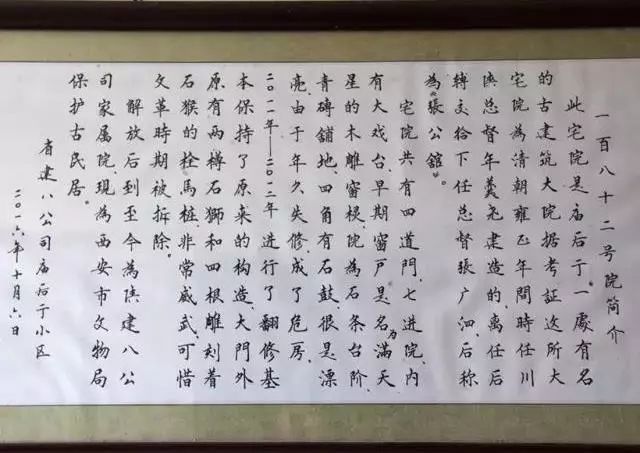 一百八十二号院简介
此宅院是庙后亍一處有名
的古建筑大院据考証这所大
宅院為清朝雍正年間時任川
陕总督年羹尧建造的,离任后
转交给下任总督張广泗,后称
為“張公舘”。
宅院共有四道門、七进院、内
有大戏台、早期窗戸是名为滿天
星的木雕窗棂、院為石条台阶、
青磚舖地、四角有石鼓、很是漂
亮、由于年久失修、成了危房、
二〇一一年——二〇一二年進行了翻修基
本保持了原来的构造、大門外
原有两樽石獅和四根雕刻着
石猴的栓馬桩、非常威武、可惜
文革時期被拆除。
解放后到至今為陕建八公
司家属院、现為西安市文物局
保护古民居。
省建八公司庙后亍小区
二〇一六年十月六日